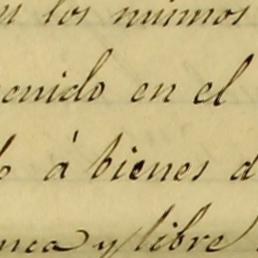 los mismos
enido en el
à bienes d
y libre